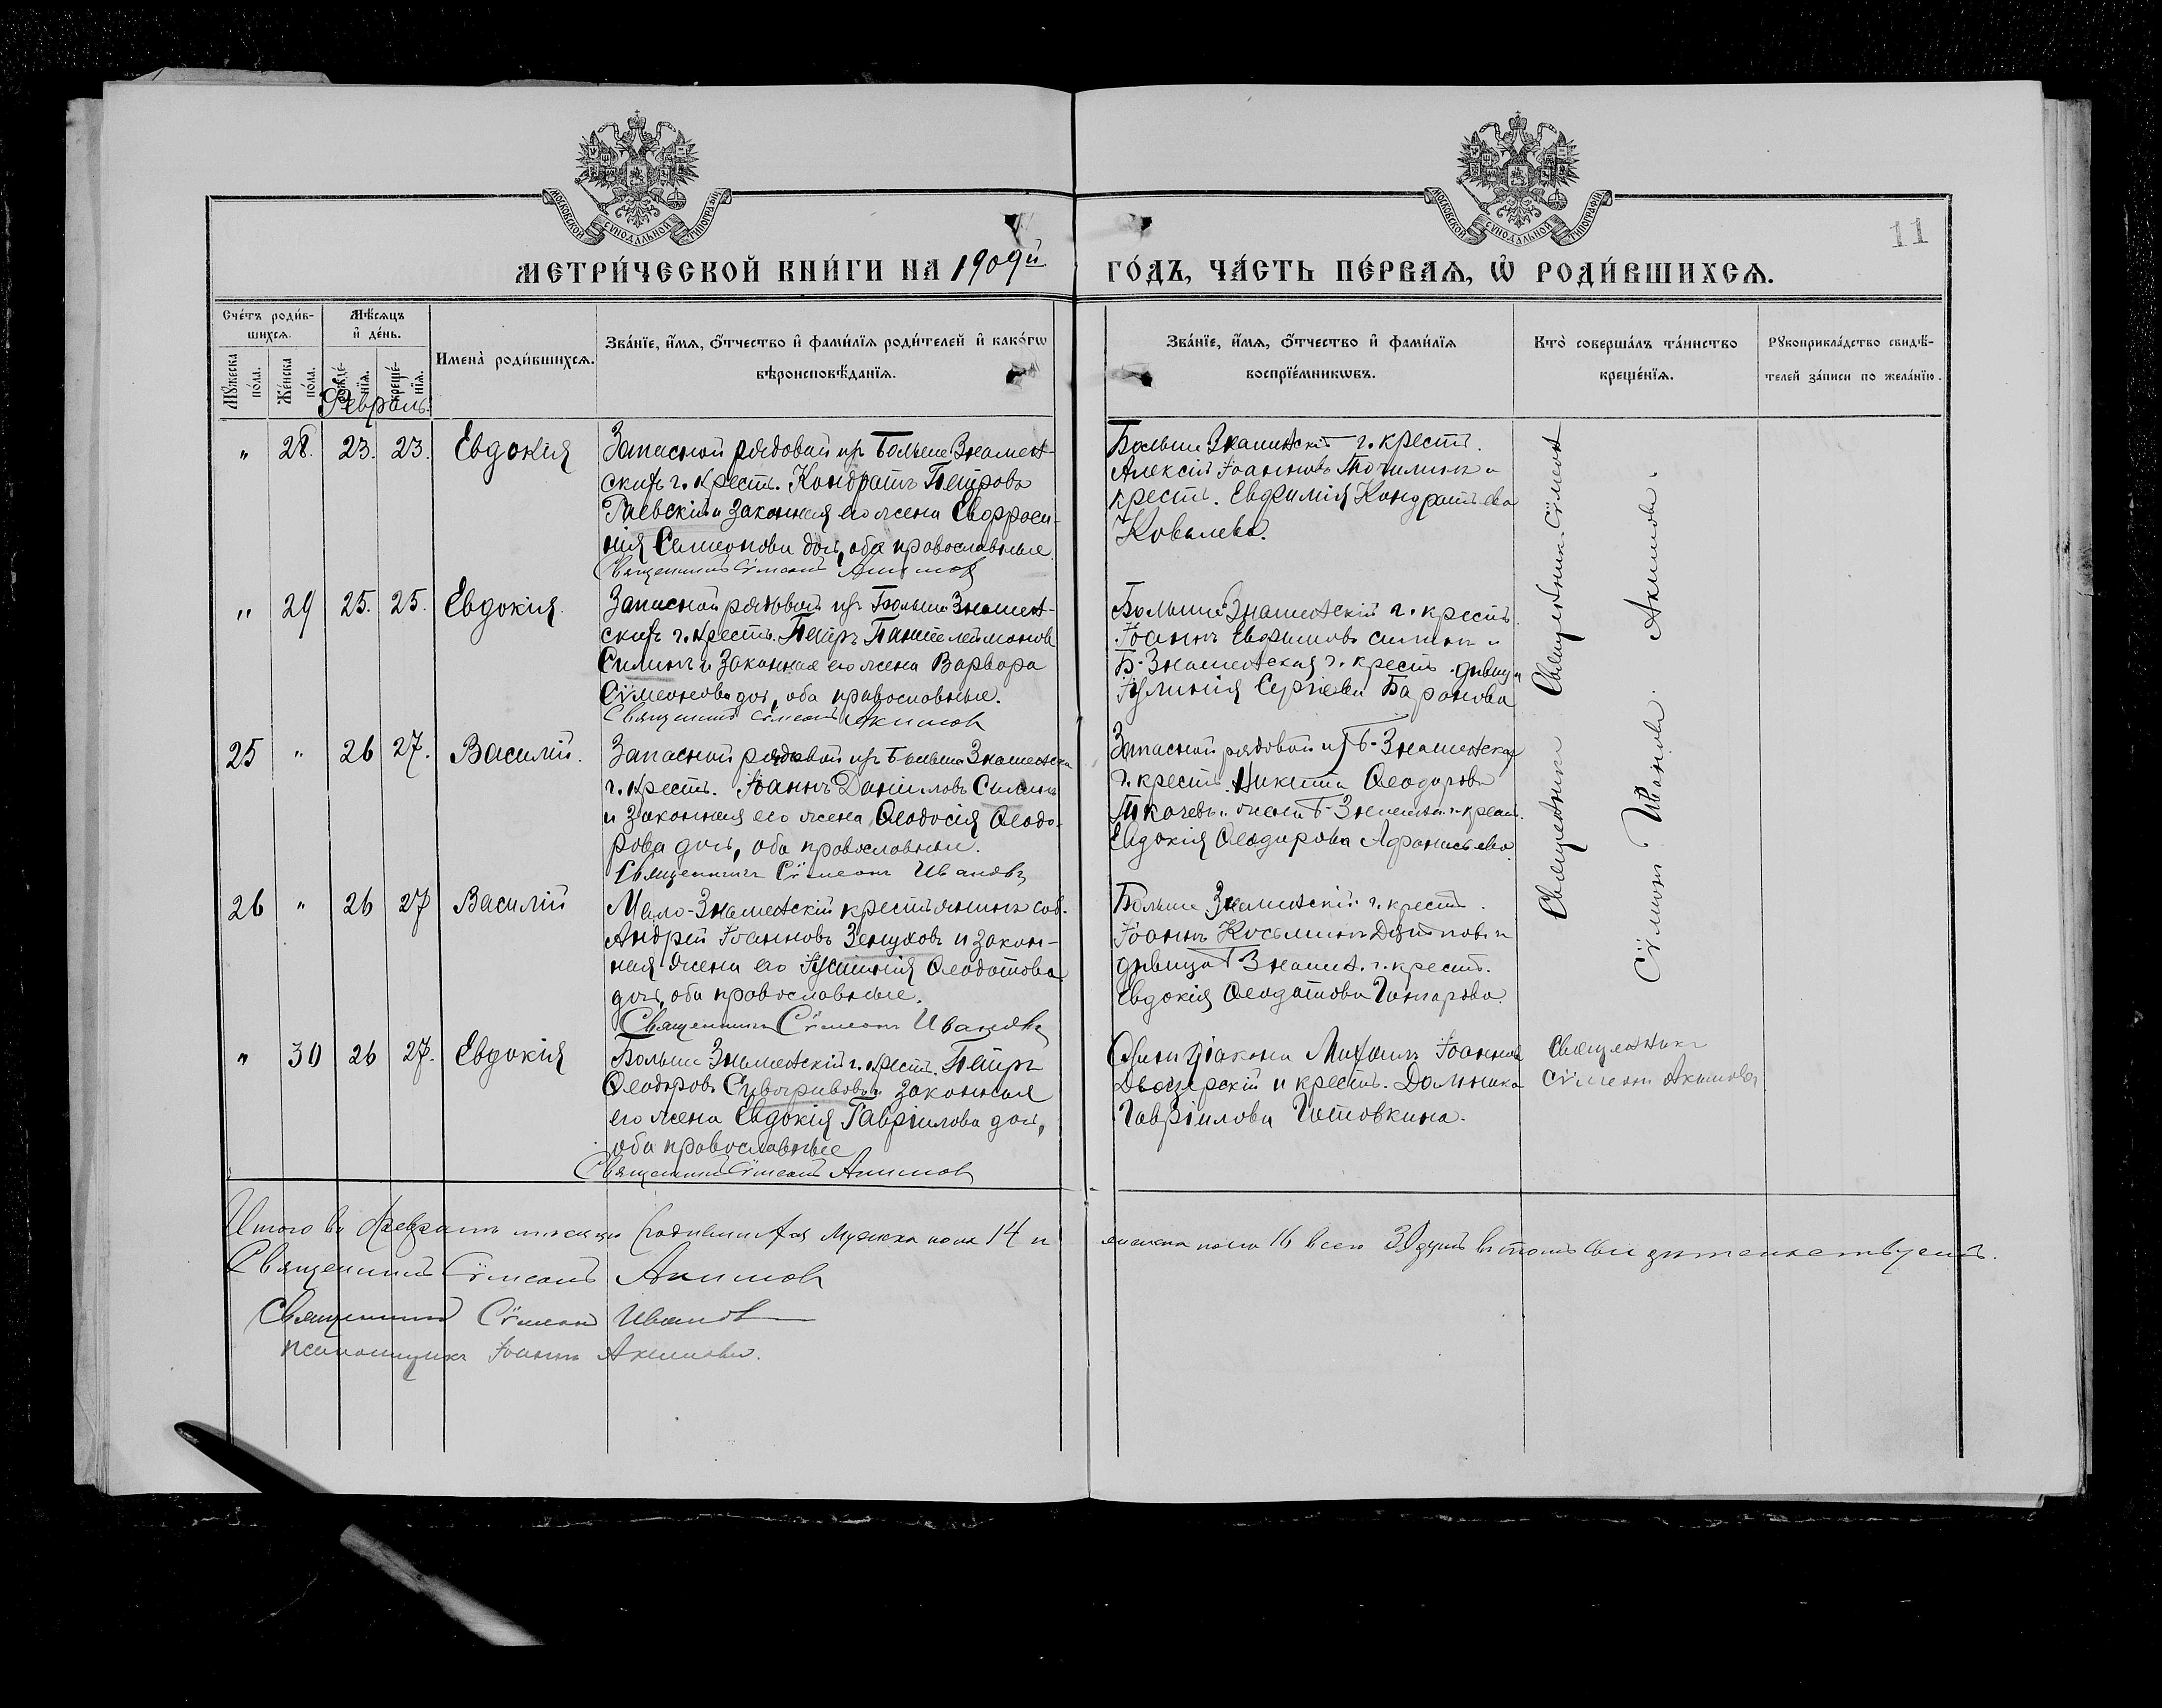 МОСКОВСКОЙ СѴНОДАЛЬНОЙ ТИПОГРАФІИ
МОСКОВСКОЙ СѴНОДАЛЬНОЙ ТИПОГРАФІИ
11
МЕТРИ́ЧЕСКОЙ КНИ́ГИ НА 1909й
ГО́ДЪ, ЧА́СТЬ ПЕ́РВАЯ, Ѿ РОДИ́ВШИХСЯ.
Сче́тъ роди́вшихся.
Мѣ́сяцъ и де́нь.
Мꙋ́жеска по́ла.
Же́нска по́ла.
рожде́нїя.
креще́нїя.
Имена̀ роди́вшихся.
Зва́нїе, и́мя, о́тчество и фами́лїя роди́телей и како́гѡ
вѣроисповѣ́данїя.
Зва́нїе, и́мя, о́тчество и фами́лїя
воспрїе́мникѡвъ.
Кто̀ соверша́лъ та́инство
креще́нїя.
Рꙋкоприкла́дство свидѣ́-
телей за́писи по жела́нїю.
Февраль
" 28. 23. 23. Евдокія
Запасной рядовой изъ Больше Знамен-
скихъ г. крест. Кондратъ Петровъ
Гаевскій и законная его жена Евфроси-
нія Симеонова дочь, оба православные
Священникъ Сѵмеонъ Акимов
Больше Знаменскій г. крест.
Алексій Іоанновъ Точилинъ и
крест. Евфимія Кондратьева
Ковалева.
" 29 25. 25. Евдокия.
Запасной рядовой изъ Больше Знамен-
скихъ г. крест. Петръ Пантелеймонов
Силинъ и законная его жена Варвара
Сѵмеонова дочь, оба православные.
Священникъ Сѵмеонъ Акимов
Больше Знаменскій г. крест.
Іоаннъ Евфимовъ Силинъ и
Б-Знаменская г. крест. дѣвица
Іулинія Сергіева Баранова
25 " 26 27. Василій.
Запасной рядовой изъ Больше Знаменски
г. крест. Іоаннъ Даніиловъ Силинъ
и законная его жена Ѳеодосія Ѳеодо-
рова дочь, оба православные.
Священникъ Сѵмеонъ Ивановъ
Запасной рядовой изъ Б-Знаменская
г. крест. Никита Ѳеодоровъ
Ткачевъ и
Евдокія Ѳеодорова Афанасьева
26 " 26 27 Василій
Мало-Знаменскій крестьянинъ соб.
Андрей Іоанновъ Зенуховъ и закон-
ная жена его Іустинія Ѳеодотова
дочь, оба православные.
Священникъ Сѵмеонъ Ивановъ
Больше Знаменскій г. крест.
Іоаннъ Косьминъ и
дѣвица Б Знамен. г. крест.
Евдокія Ѳеодотова Гончарова.
" 30 26 27. Евдокія
Больше Знаменскій г. крест. Петръ
Ѳеодоровъ Сивогривовъ и законная
его жена Евдокія Гавріилова дочь,
оба православные
Священникъ Сѵмеонъ Акимов
діакона Михаилъ Іоаннов
и крест. Домника
Гавріилова Готовкина.
Священникъ
Сѵмеонъ Акимовъ
Священникъ Сѵмеонъ
Акимовъ.
Священникъ
Сѵмеонъ Ивановъ.
Итого въ Февралѣ мѣсяцѣ родившихся мужеска пола 14 и
женска пола 16 всего 30 душъ въ томъ свидѣтельствуемъ.
Священникъ Сѵмеонъ Акимов
Священникъ Сѵмеонъ Иванов
псаломщикъ Іоаннъ Акимовъ.